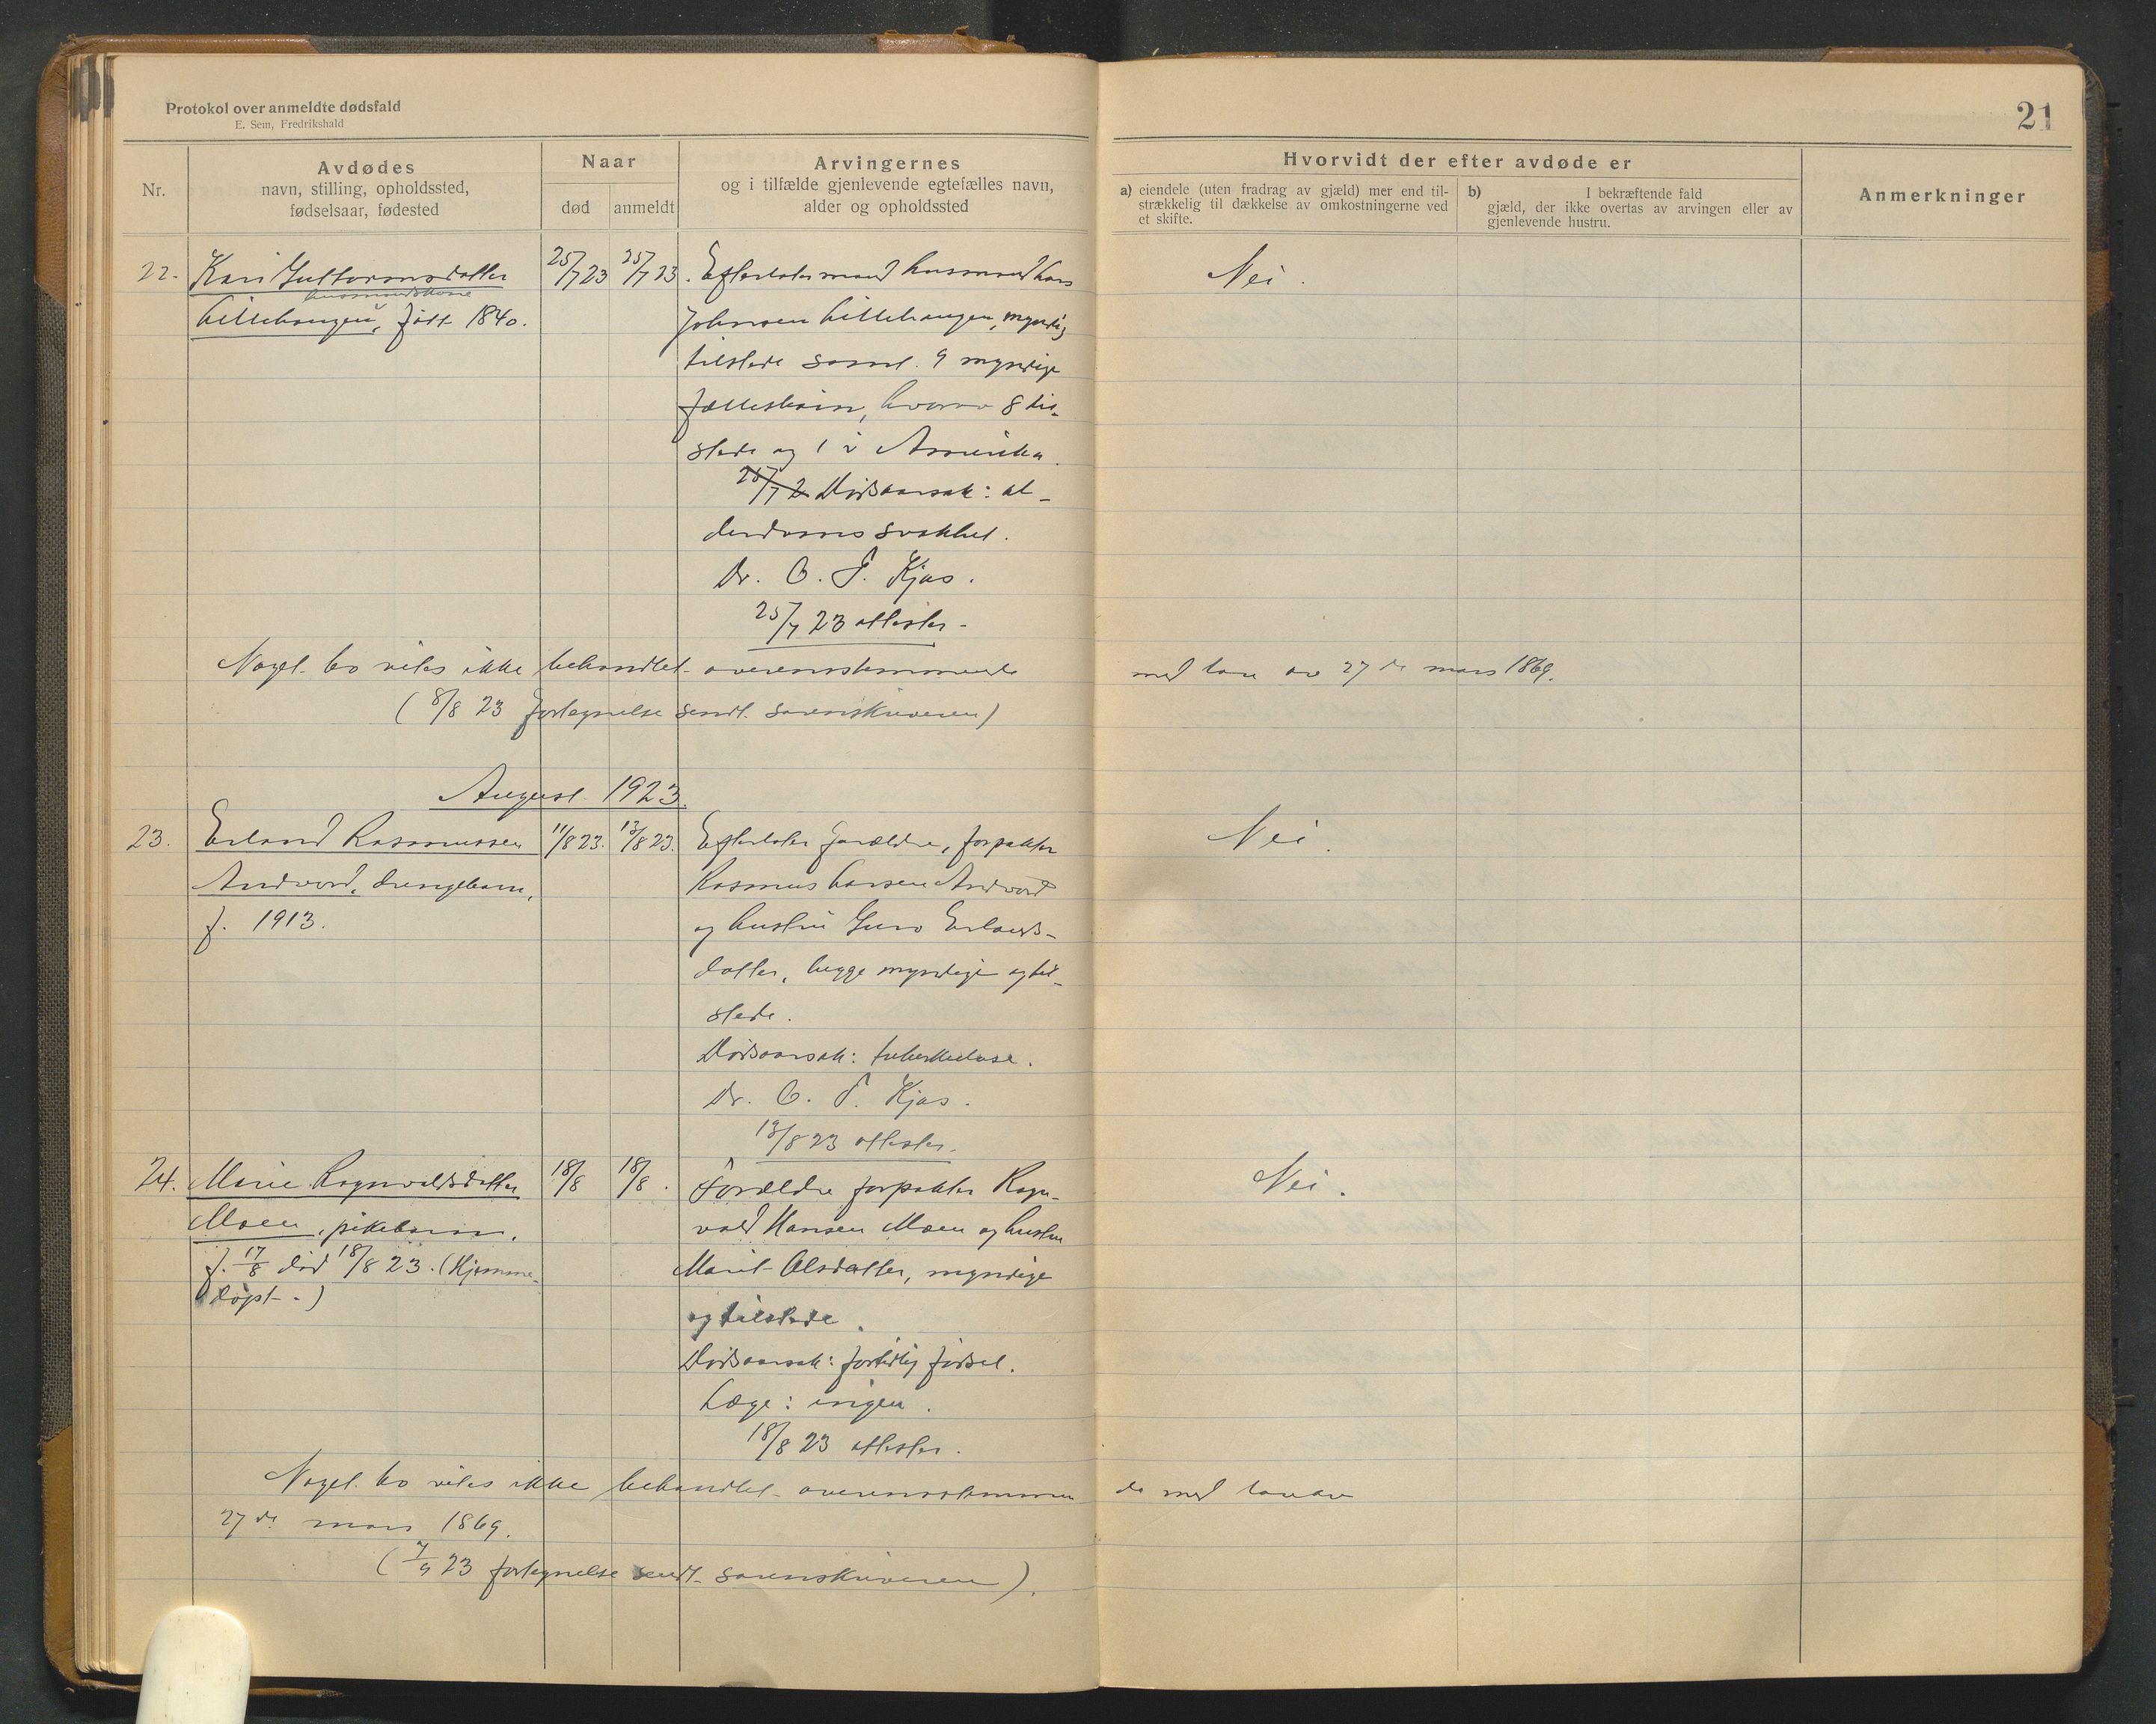 Protokol over anmeldte dødsfald
E. Sem, Fredrikshald
21
Nr.
Avdødes
navn, stilling, opholdssted,
fødselsaar, fødested
Naar
død
anmeldt
Arvingernes
og i tilfælde gjenlevende egtefælles navn,
alder og opholdssted
Hvorvidt der efter avdøde er
a) eiendele (uten fradrag av gjæld) mer end til-
strækkelig til dækkelse av omkostningerne ved
et skifte.
b) I bekræftende fald
gjæld, der ikke overtas av arvingen eller av
gjenlevende hustru.
Anmerkninger
22. Kari Guttormsdatter 25/7 23 25/7 23. Efterlater mand husmand Lars Nei.
husmandskone
Lillehaugen, født 1840. Johnsen Lillehaugen, myndig
tilstede samt 9 myndige
fællesbarn, hvorav 8 til-
stede og 1 i Amerika.
25/7 2 Dødsaarsak: al-
derdomssvakhet.
Dr. O. F. Kjos.
25/7 23 attester.
Nogel. bo vites ikke behandlet overensstemmende med lov av 27de mars 1869.
(8/8 23 fortegnelse sendt sorenskriveren)
August 1923.
23. Erland Rasmussen 11/8 23. 13/8 23. Efterlater forældre, forpakter Nei.
Andvord, drengebarn, Rasmus Larsen Andvord
f. 1913. og hustru Guro Erlands-
datter, begge myndige og til-
stede.
Dødsaarsak: tuberkulose.
Dr. O. F. Kjos.
13/8 23 attester.
24. Marie Ragnvaldsdatter 18/8 18/8. Forældre forpakter Ragn- Nei.
Moen, pikebarn, vald Hansen Moen og hustru
f. 17/8 død 18/8 23. (Hjemme- Marit Olsdatter, myndige
døpt.) og tilstede.
Dødsaarsak: fortidlig fødsel.
Læge: ingen.
18/8 23 attester.
Nogel. bo vites ikke behandlet overensstemmen de med lov av
27de mars 1869.
(7/9 23 fortegnelse sendt sorenskriveren).